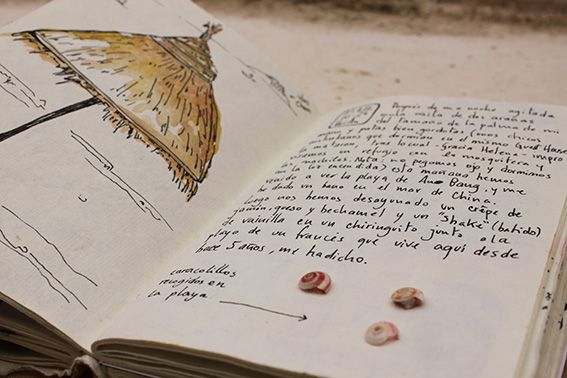 Después de una noche agitada
visita de dos arañas
del tamaño de la palma de mi
mano y patas bien gordotas (unos chicos
que dormían en el mismo Guest House
la mataron, tras lo cual Gracia Helena impro
un refugio con la mosquitera y
las mochilas. Nota: no pegamos ojo y dormimos
con la luz encendida) esta mañana hemos
venido a ver la playa de Ang Bang, y me
he dado un baño en el mar de China.
Luego nos hemos desayunado un crêpe de
jamón, queso y bechamel y un "Shake" (batido)
de vainilla en un chiringuito junto a la
playa de un francés que vive aquí desde
hace 5 años, me ha dicho.
caracolillos
recogidos en
la playa